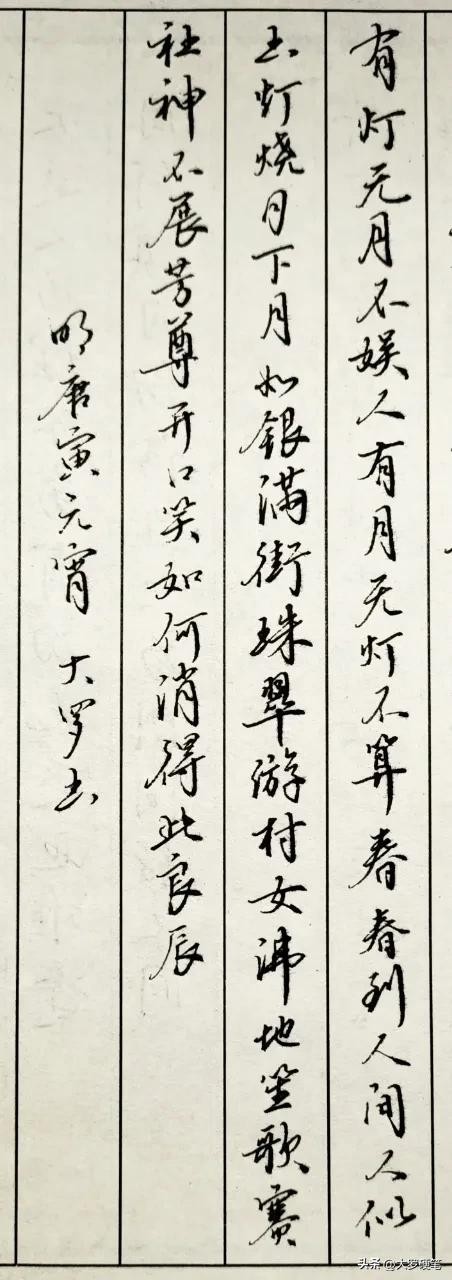 有灯无月不娱人有月无灯不算春春到人间人似
玉灯烧月下月如银满街珠翠游村女沸地笙歌赛
社神不展芳尊开口笑如何消得此良辰
明唐寅元宵 大罗书
头条 @大罗硬笔